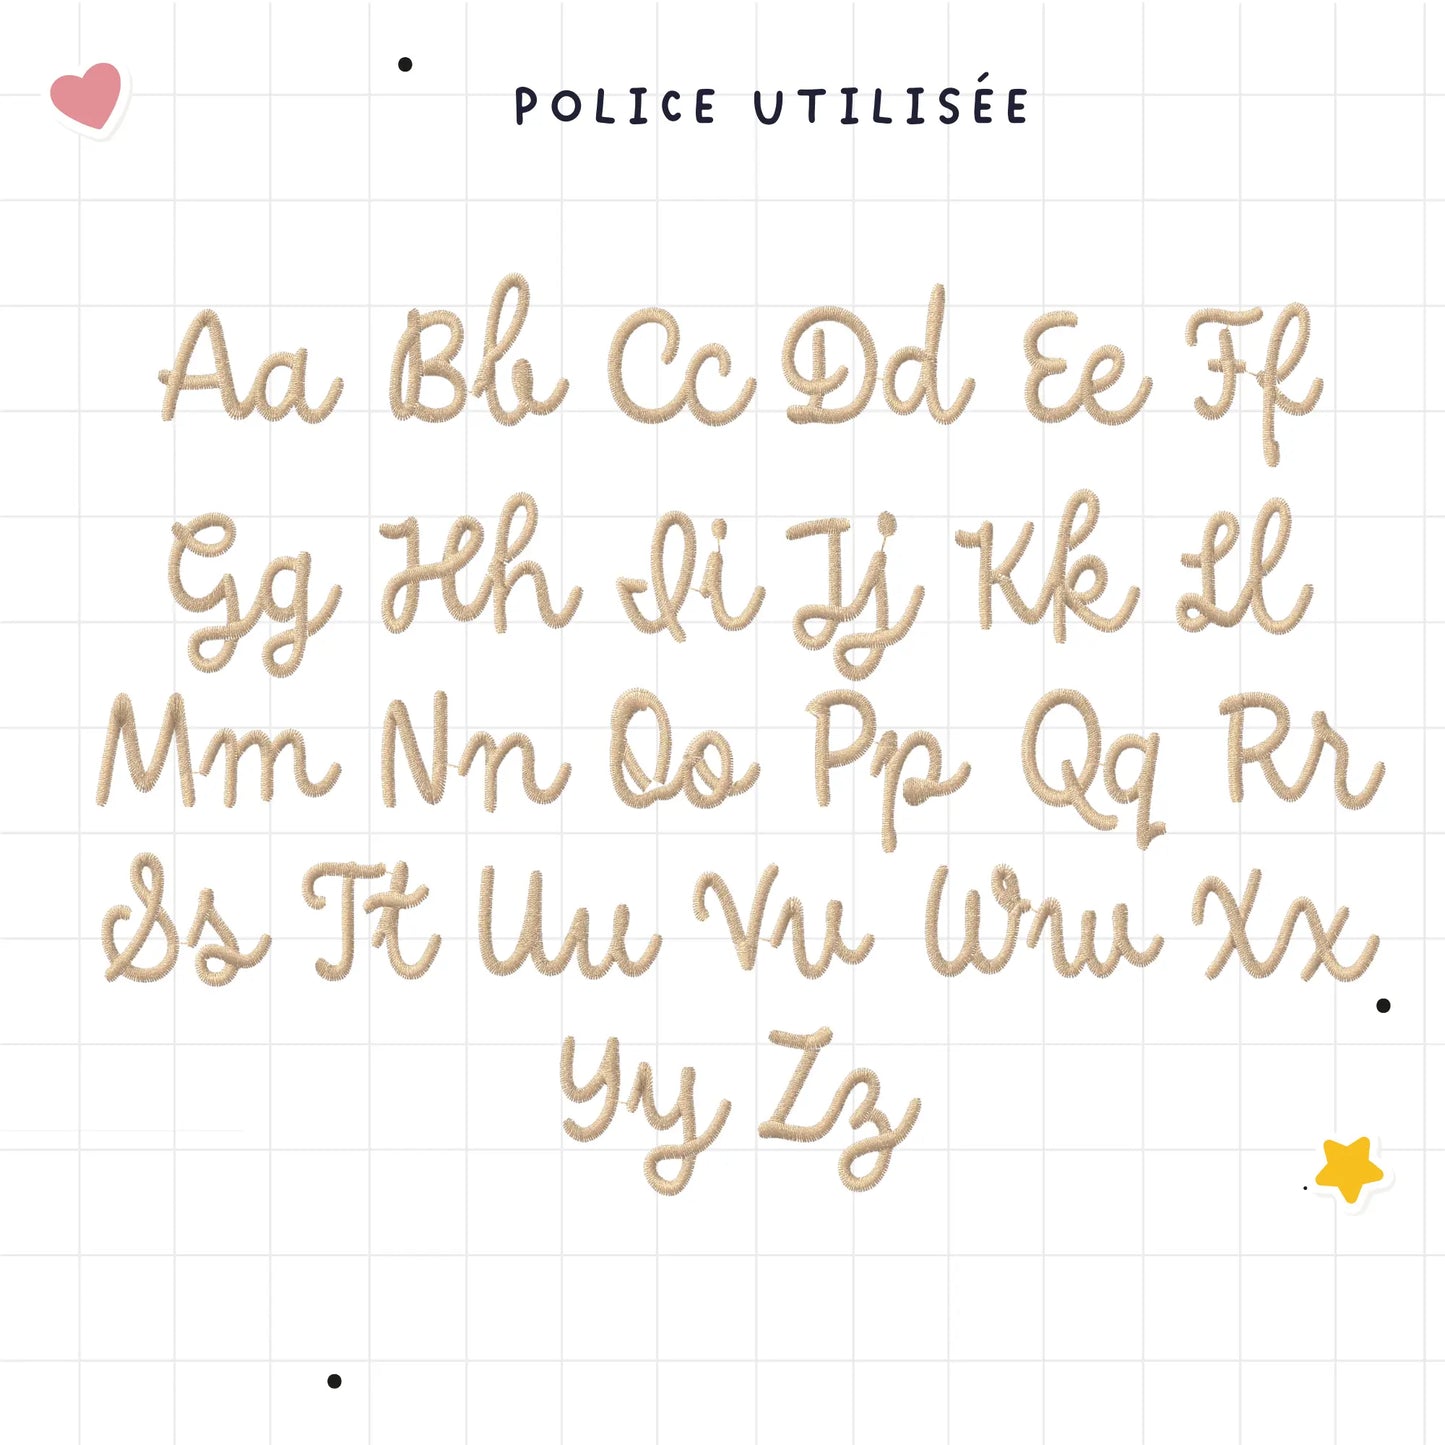 POLICE UTILISÉE
Aa Bb Cc Dd Ee Ff
Gg Hh Ii Jj Kk Ll
Mm Nn Oo Pp Qq Rr
Ss Tt Uu Vv Ww Xx
Yy Zz